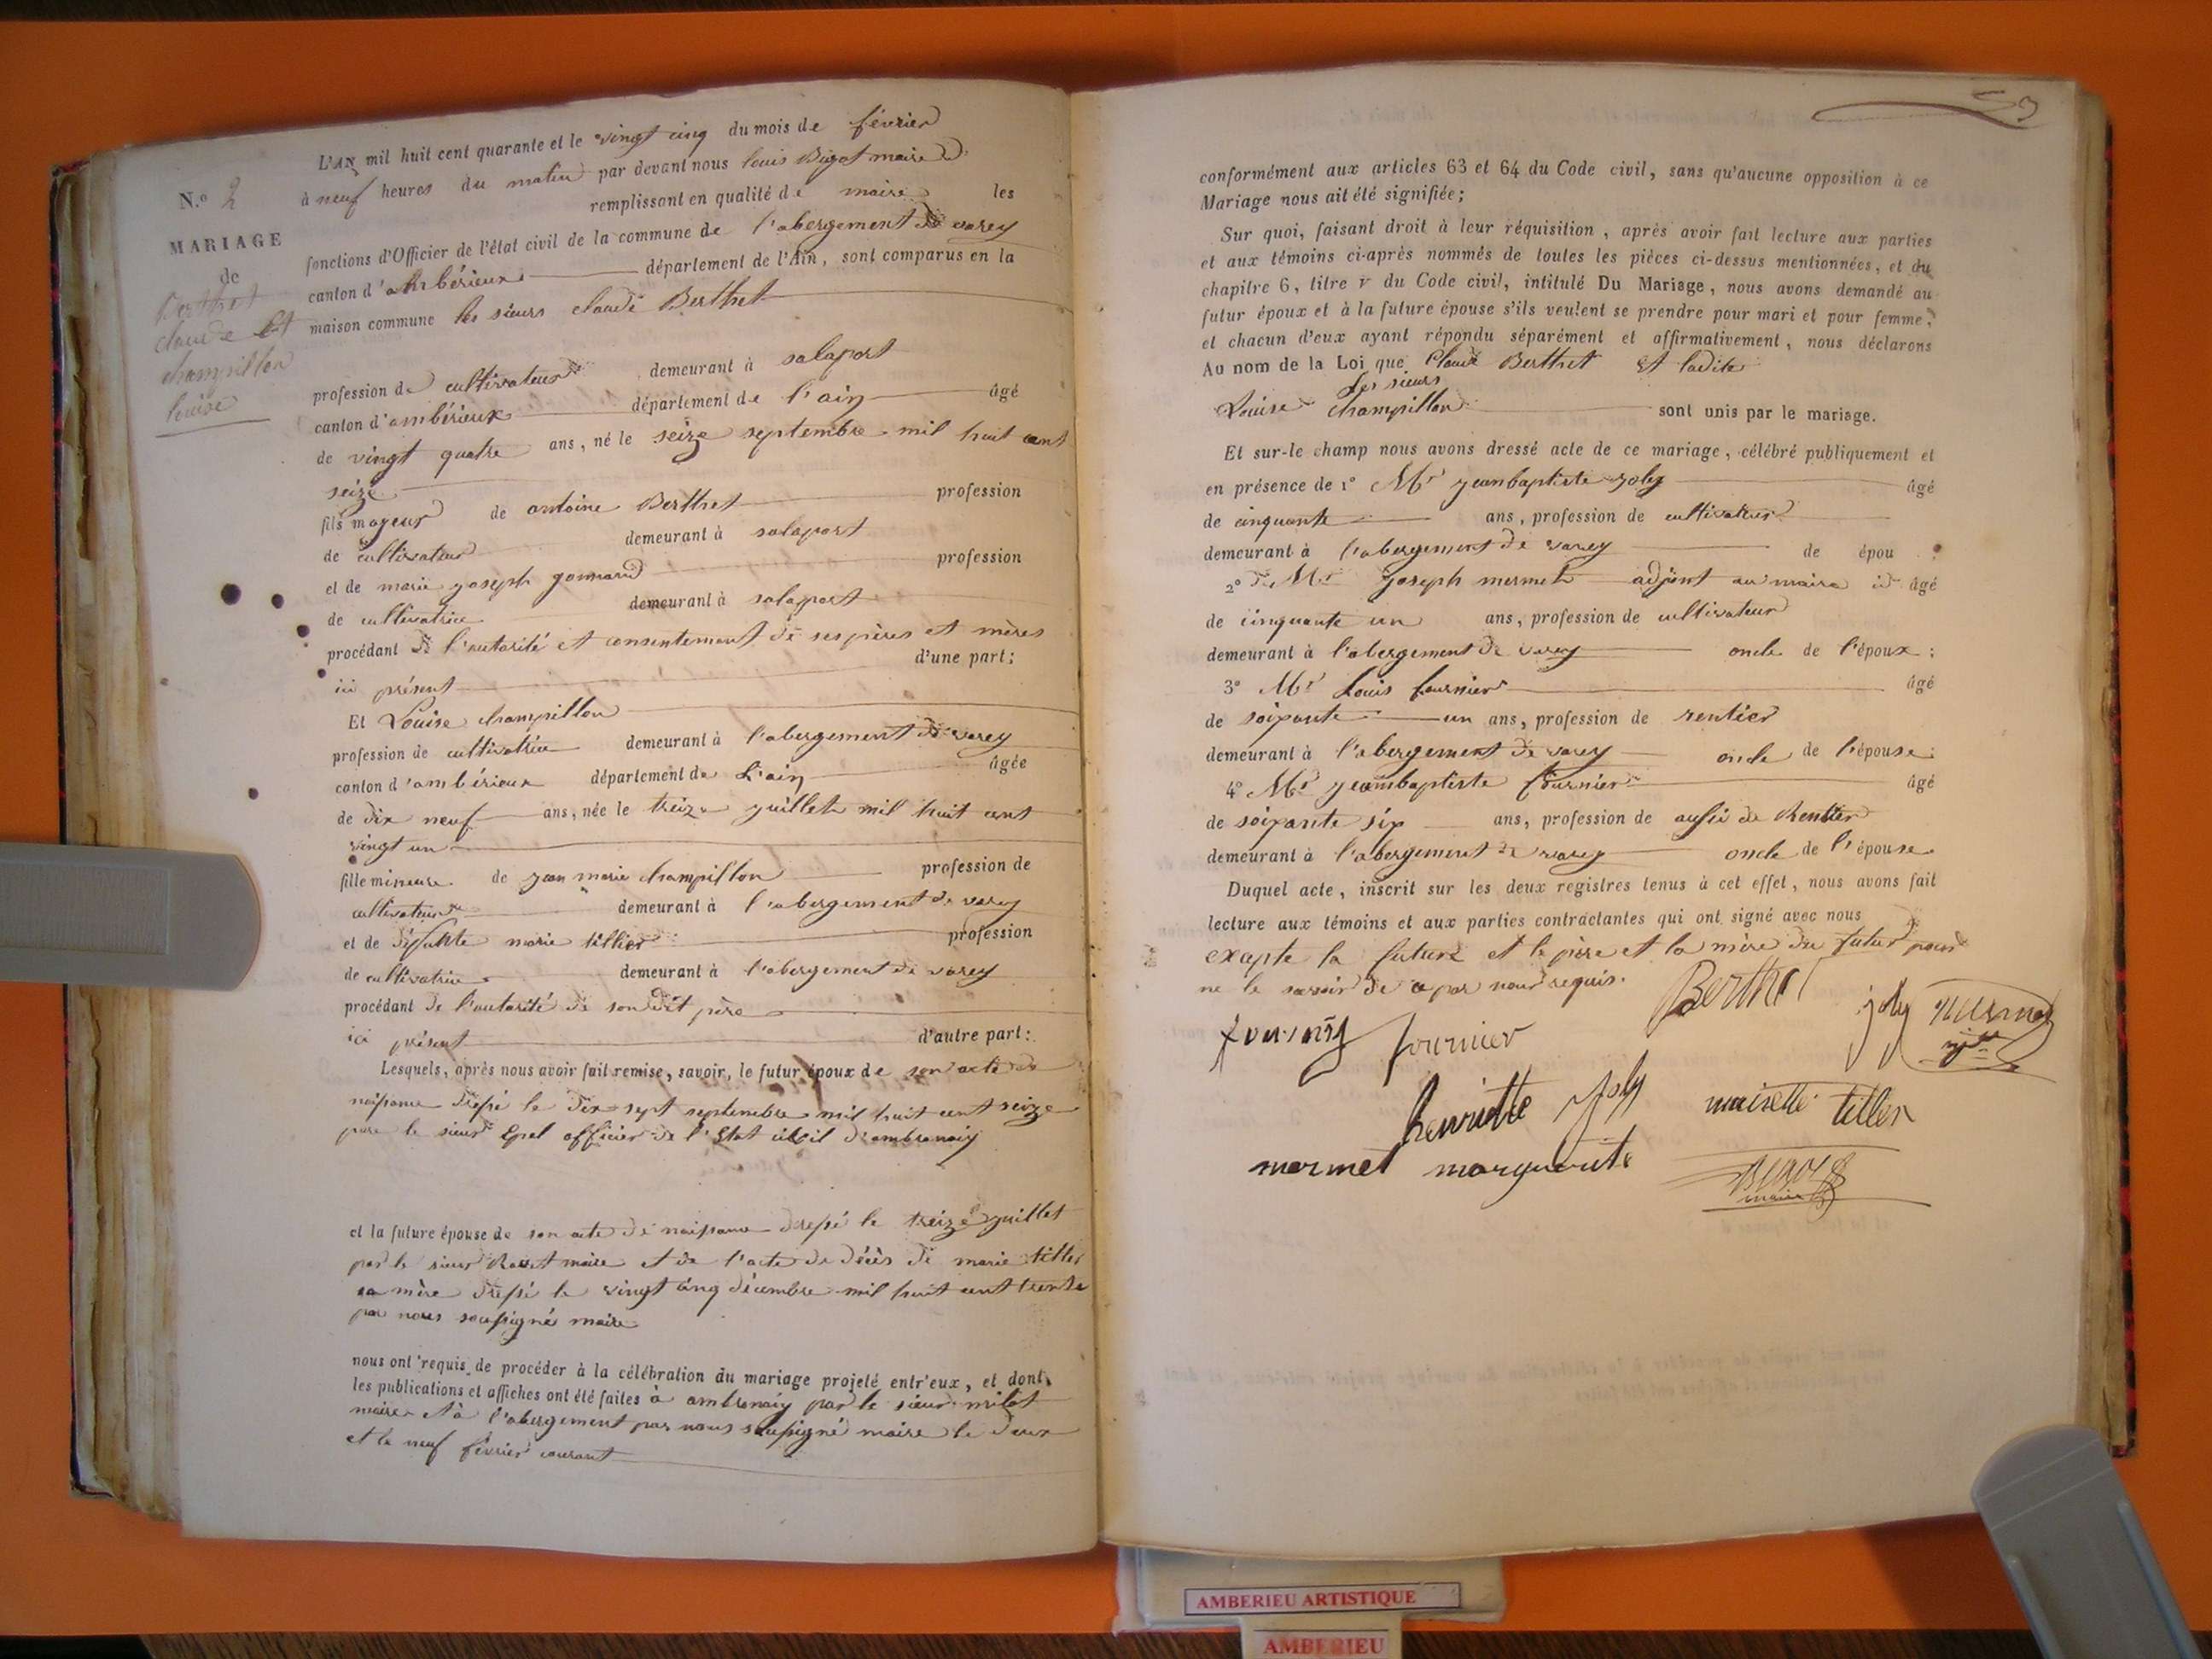 N.º 2
MARIAGE
de
Berthet
claude Et
champillon
louise
L'AN mil huit cent quarante et le vingt cinq du mois de février
à neuf heures du matin par devant nous louis Bigot maire
remplissant en qualité de maire les
fonctions d'Officier de l'état civil de la commune de l'abergement de varey
canton d'ambérieux département de l'Ain, sont comparus en la
maison commune les sieurs claude Berthet
profession de cultivateur demeurant à salaport
canton d'ambérieux département de l'ain âgé
de vingt quatre ans, né le seize septembre mil huit cent
seize
fils mageur de antoine Berthet profession
de cultivateur demeurant à salaport
et de marie yoseph gonnard profession
de cultivatrice demeurant à salaport
procédant de l'autorité et consentement de ses pères et mères
ici présent d'une part;
Et Louise champillon
profession de cultivatrice demeurant à l'abergement de varey
canton d'ambérieux département de L'ain âgée
de dix neuf ans, née le treize yuillet mil huit cent
vingt un
fille mineure de yean marie champillon profession de
cultivateur demeurant à l'abergement de varey
et de défunte marie tillier profession
de cultivatrice demeurant à l'abergement de varey
procédant de l'autorité de son dit père
ici présent d'autre part:
Lesquels, après nous avoir fait remise, savoir, le futur époux de son acte de
naissance dressé le dix sept septembre mil huit cent seize
par le sieur officier de l'Etat civil d'ambronaiy
et la future épouse de son acte de naissance dressé le treize yuillet
par le sieur maire et de l'acte de décès de marie tillier
sa mère dressé le vingt cinq décembre mil huit cent trente
par nous soussigné maire
nous ont requis de procéder à la célébration du mariage projeté entr'eux, et dont
les publications et affiches ont été faites à ambronaiy par le sieur milot
maire et à l'abergement par nous soussigné maire le deux
et le neuf février courant
conformément aux articles 63 et 64 du Code civil, sans qu'aucune opposition à ce
Mariage nous ait été signifiée;
Sur quoi, faisant droit à leur réquisition, après avoir fait lecture aux parties
et aux témoins ci-après nommés de toutes les pièces ci-dessus mentionnées, et du
chapitre 6, titre v du Code civil, intitulé Du Mariage, nous avons demandé au
futur époux et à la future épouse s'ils veulent se prendre pour mari et pour femme;
et chacun d'eux ayant répondu séparément et affirmativement, nous déclarons
Au nom de la Loi que Claude Berthet et ladite
les sieurs
Louise champillon sont unis par le mariage.
Et sur-le champ nous avons dressé acte de ce mariage, célébré publiquement et
en présence de 1º Mr yeanbaptiste yoly âgé
de cinquante ans, profession de cultivateur
demeurant à l'abergement de varey de épou
2º de Mr yoseph mermet adjoint au maire id âgé
de cinquante un ans, profession de cultivateur
demeurant à l'abergement de varey oncle de l'époux;
3º Mr Louis fournier âgé
de soixante un ans, profession de rentier
demeurant à l'abergement de varey oncle de l'épouse;
4º Mr yeanbaptiste fournier âgé
de soixante six ans, profession de aussi de Rentier
demeurant à l'abergement de varey oncle de l'épouse
Duquel acte, inscrit sur les deux registres tenus à cet effet, nous avons fait
lecture aux témoins et aux parties contractantes qui ont signé avec nous
exapte la future et le père et la mère du futur pour
ne le savoir de ce par nous requis.
Berthet joly mermet
fournier
henriette joly tiller
mermet marguerite
Bigot
maire
AMBERIEU ARTISTIQUE
AMBERIEU